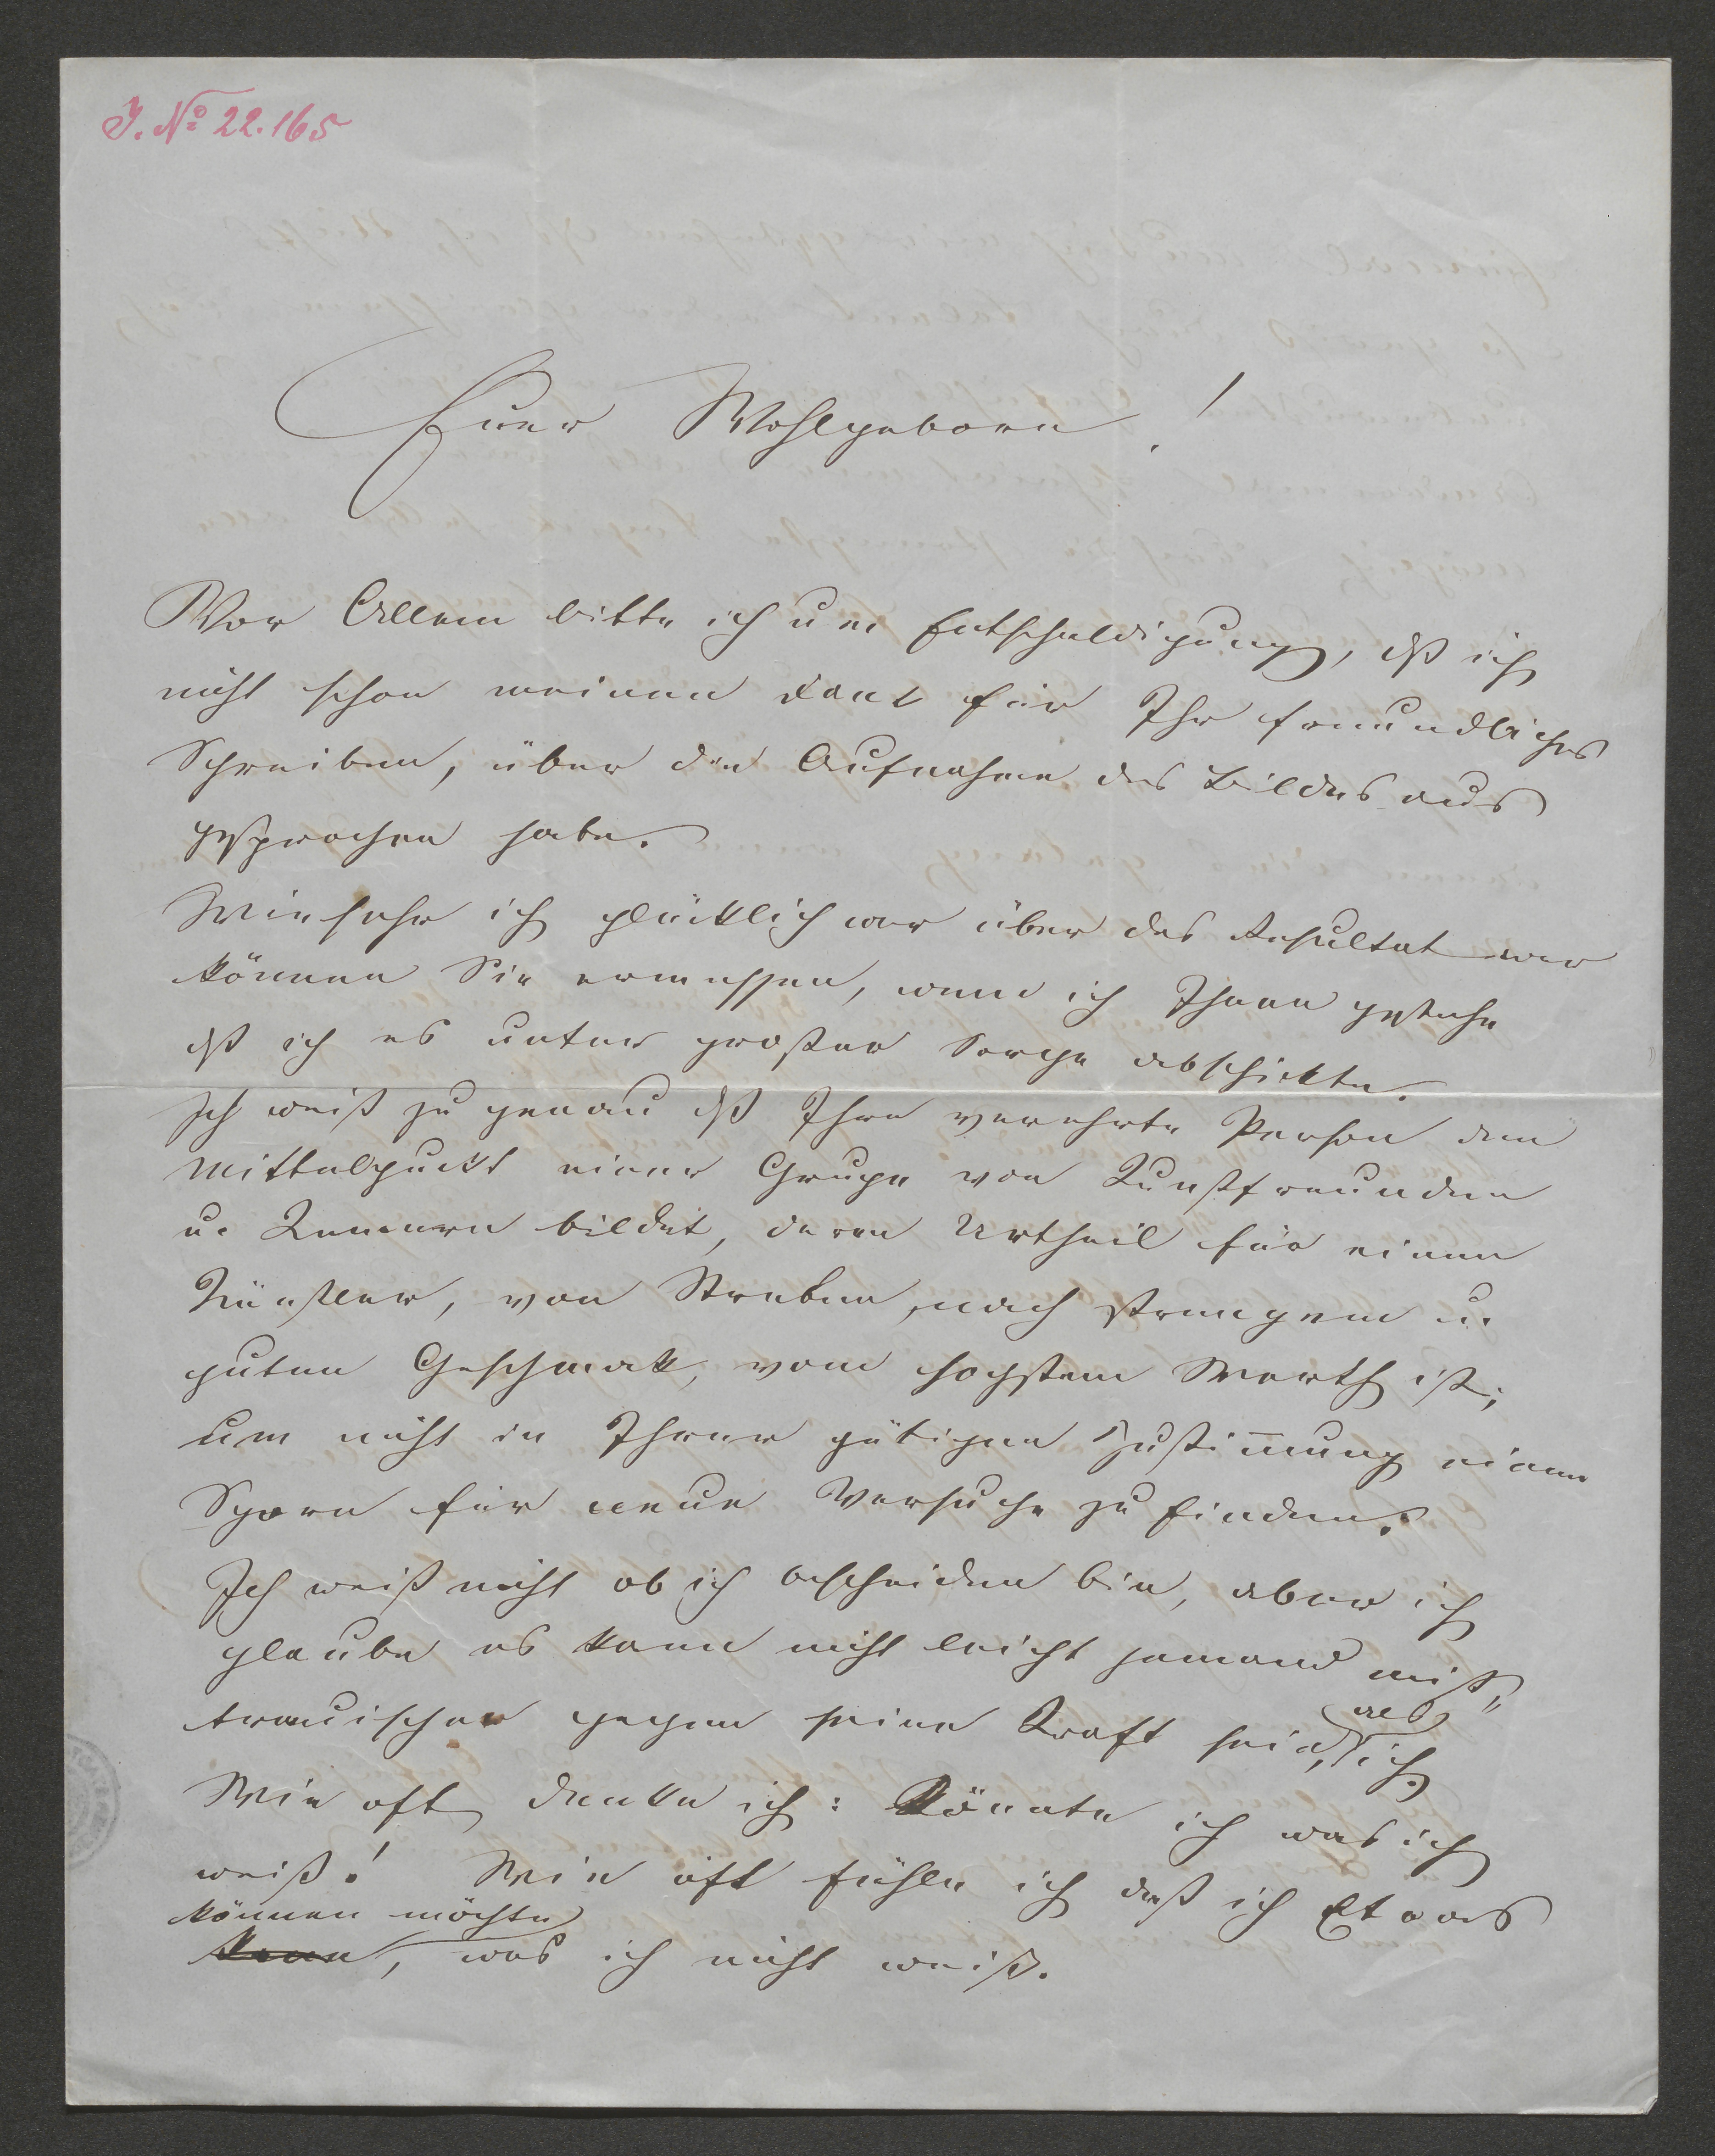 J. No 22.165
Euer Wohlgeborn!
Vor Allem bitte ich um Entschuldigung, dß ich
nicht schon meinen Dank für Ihr freundliches
Schreiben, über die Aufnahme des Bildes aus
gesprochen habe.
Wie sehr ich glücklich war über das Resultat war
können Sie ermessen, wenn ich Ihnen gestehe
dß ich es unter großer Sorge abschickte.
Ich weiß zu genau dß Ihre verehrte Person den
Mittelpunkt einer Grupe von Kunstfreunden
u. Kennern bildet, deren Urtheil für einen
Künstler, von Streben nach strengem u.
guten Geschmak, vom hochstem Werth ist;
um nicht in Ihrer gütigen Zustim̄ung einen
Sporn für neue Versuche zu finden.
Ich weiß nicht ob ich bescheiden bin, aber ich
glaube es kann nicht leicht jemand miß„
trauischer gegen seine Kraft sein, als ich.
Wie oft denke ich: Könnte ich was ich
weiß! Wie oft fühle ich daß ich Etwas
können möchte
kann, was ich nicht weiß.